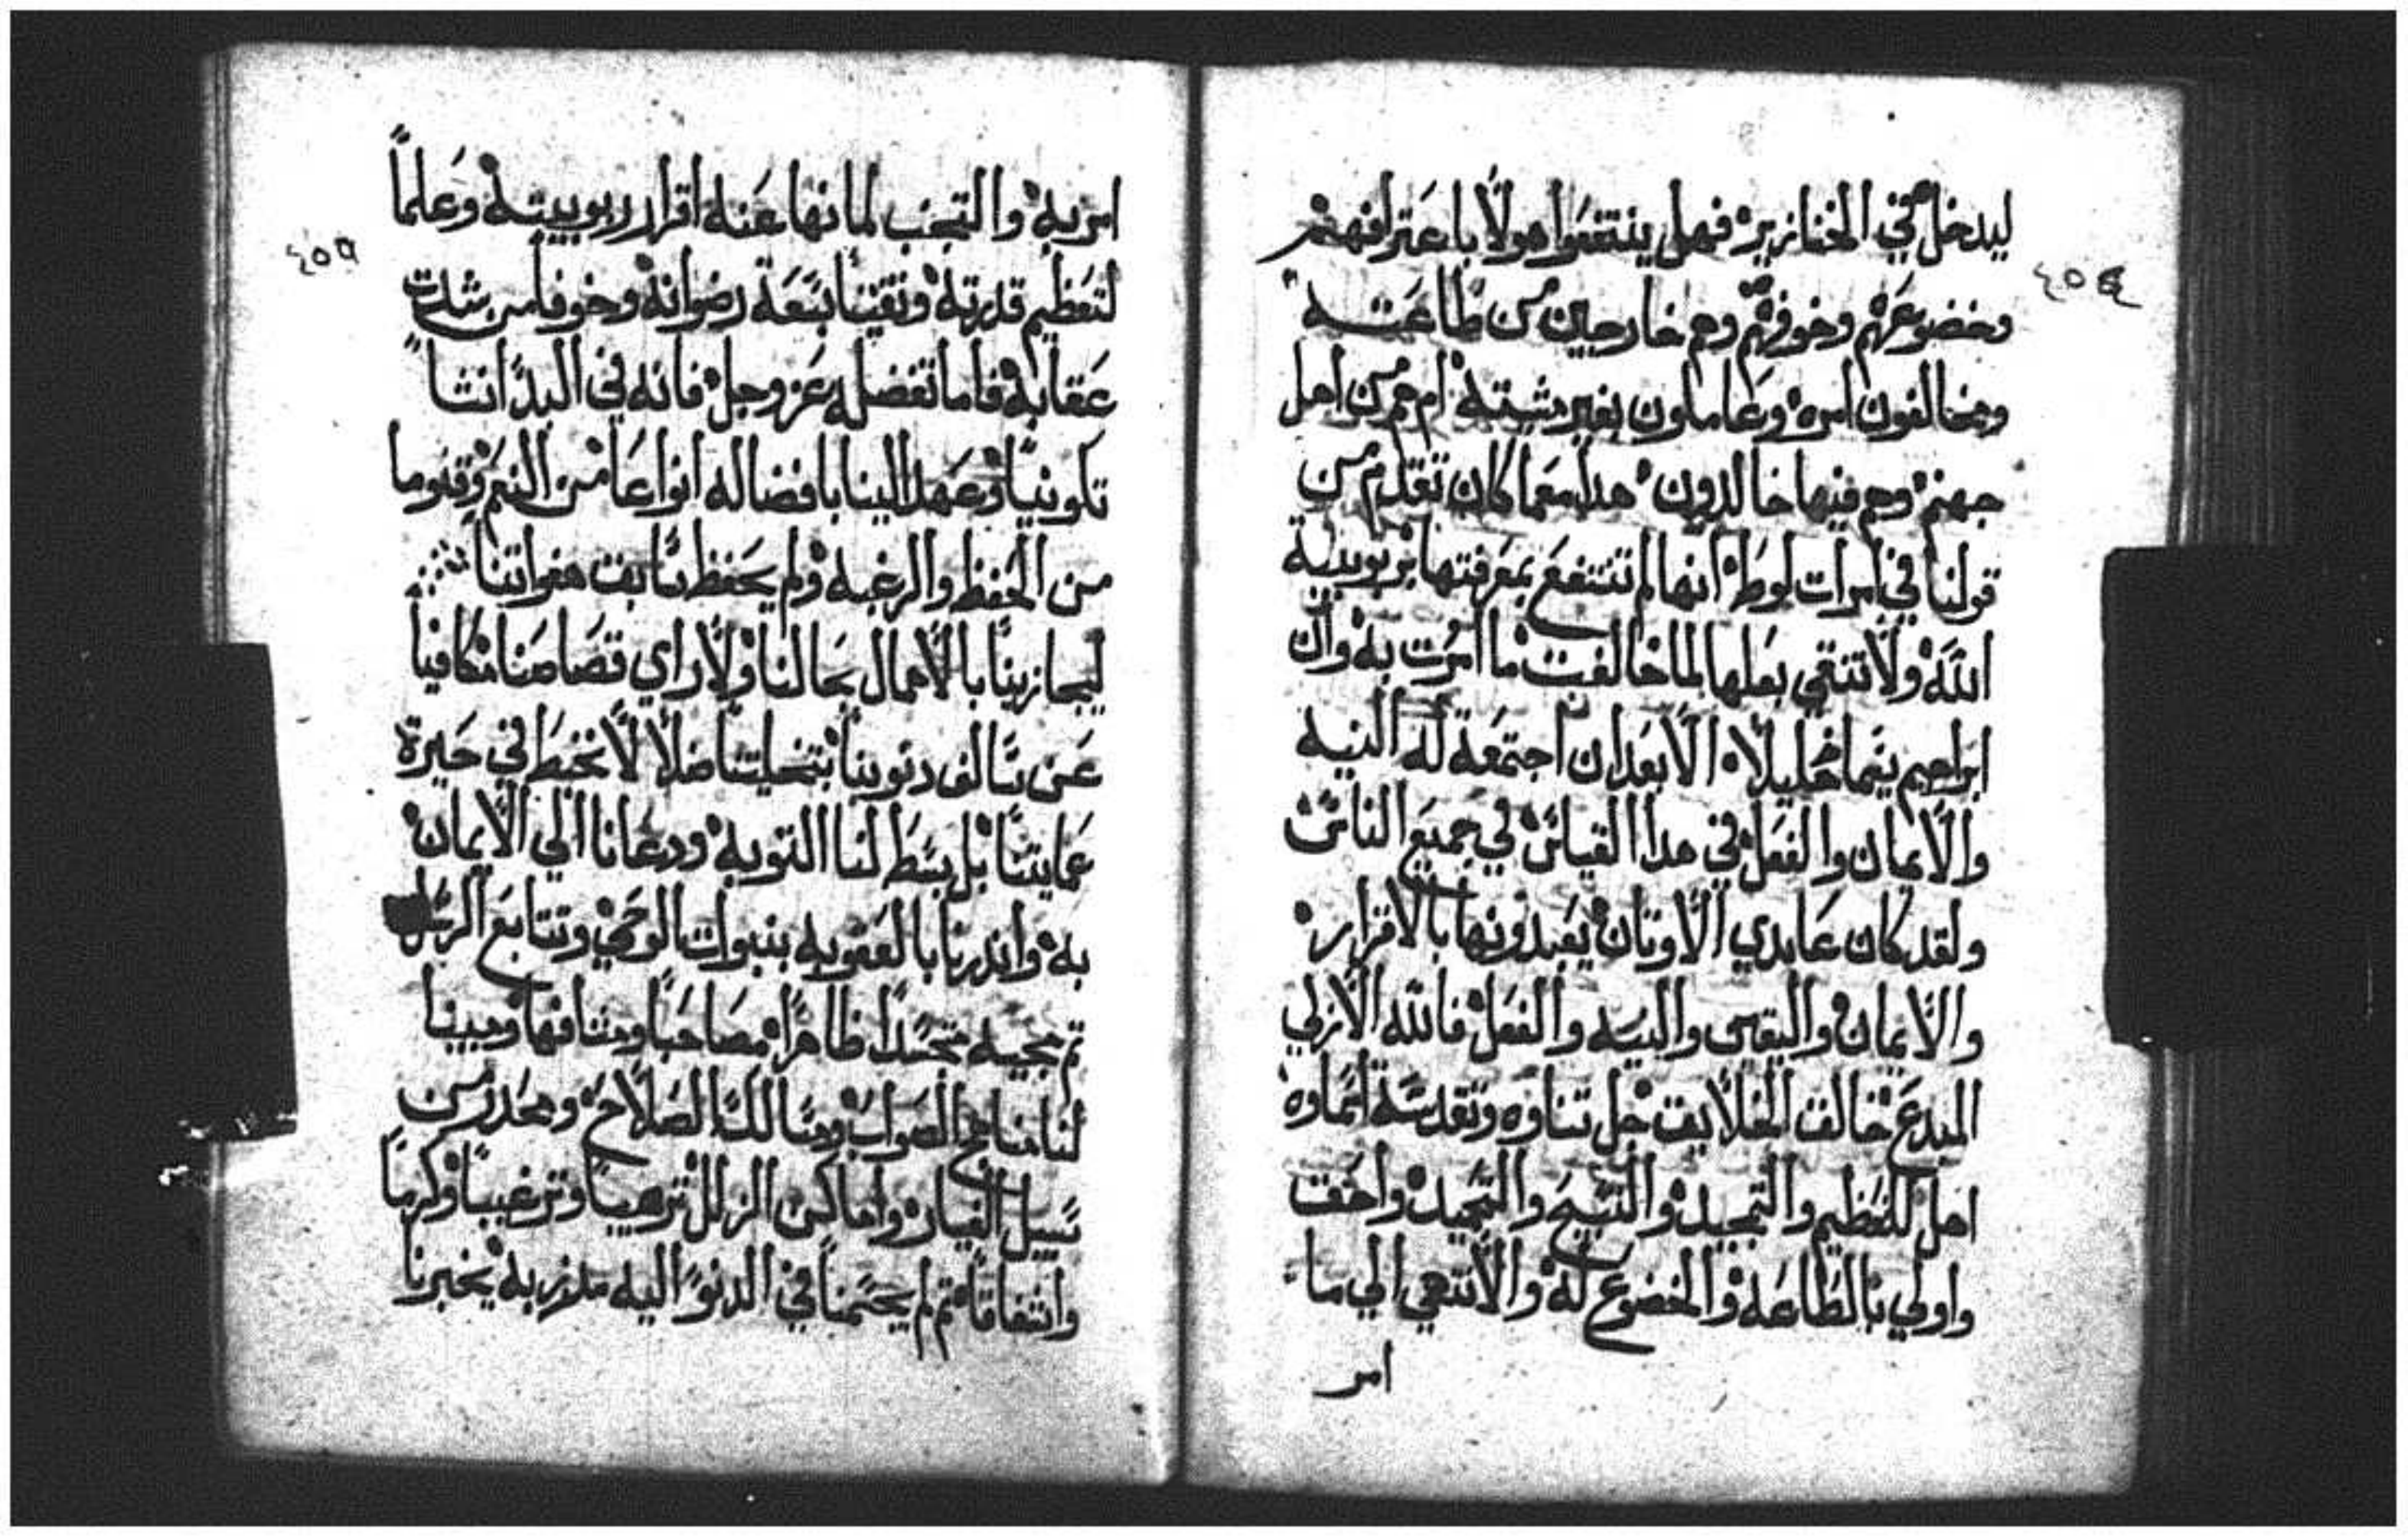 ليدخل في الخنازير فهل ينتفعوا هولا باعترافهم
٤٥٤
وخضوعهم وخوفهم وهم خارجين من طاعته
ومخالفون امره وعاملون بغير مشيته ام هم من اهل
جهنم وهم فيها خالدون هدا معما كان تقدم من
قولنا في امرات لوط انها لم تنتفع بمعرفتها بربوبية
الله ولا تنتقي بعلها لما خالفت ما امرت به وان
ابراهيم يغما خليلا الا بعد ان اجتمعة له النيه
والايمان والفعل في هدا القياس في جميع الناس
ولقد كان عابدي الاوتان يعبدونها بالاقرار
والايمان واليقين والنيه والفعل فالله الازلي
المبدع خالق الخلايق جل تناوه وتقدسة اسماوه
اهل للتعظيم والتمجيد والتسبيح والتحميد واحق
واولي بالطاعه والخضوع له والانتهي الي ما
امر
امر به والتجنب لما نها عنه اقرار ربوبيته وعلماً
٤٥٥
لتعظيم قدرته وتقينا بسعة رضوانه وخوفا من شدت
عقابه فاما تفضله عز وجل فانه في البدانشا
تكوينا وعهد الينا بافضاله انواعا من النعم وفنوما
من الحفظ والرغبه ولم يحفظ سابق هفواتنا
ليجازينا بالاهمال بحالنا ولا راي قصاصنا مكافيا
عن سالف دنوبنا بتخليتنا ضلالا نخبط في حيرة
عمايتنا بل بسط لنا التوبه ودعانا الي الايمان
به واندرنا بالعقوبه بنبوات الوحي وتتابع الرسل
تم مجيه متجسدا ظاهرا مصاحبا ومشافها ومبينا
لنا مناهج الصواب ومسالك الصلاح ومحدر من
سبيل الغيار واماكن الزلل ترهيبا وترغيبا وكرما
وانتفاقا تم لم يحسمنا في الدنو اليه مدربه يخبرنا